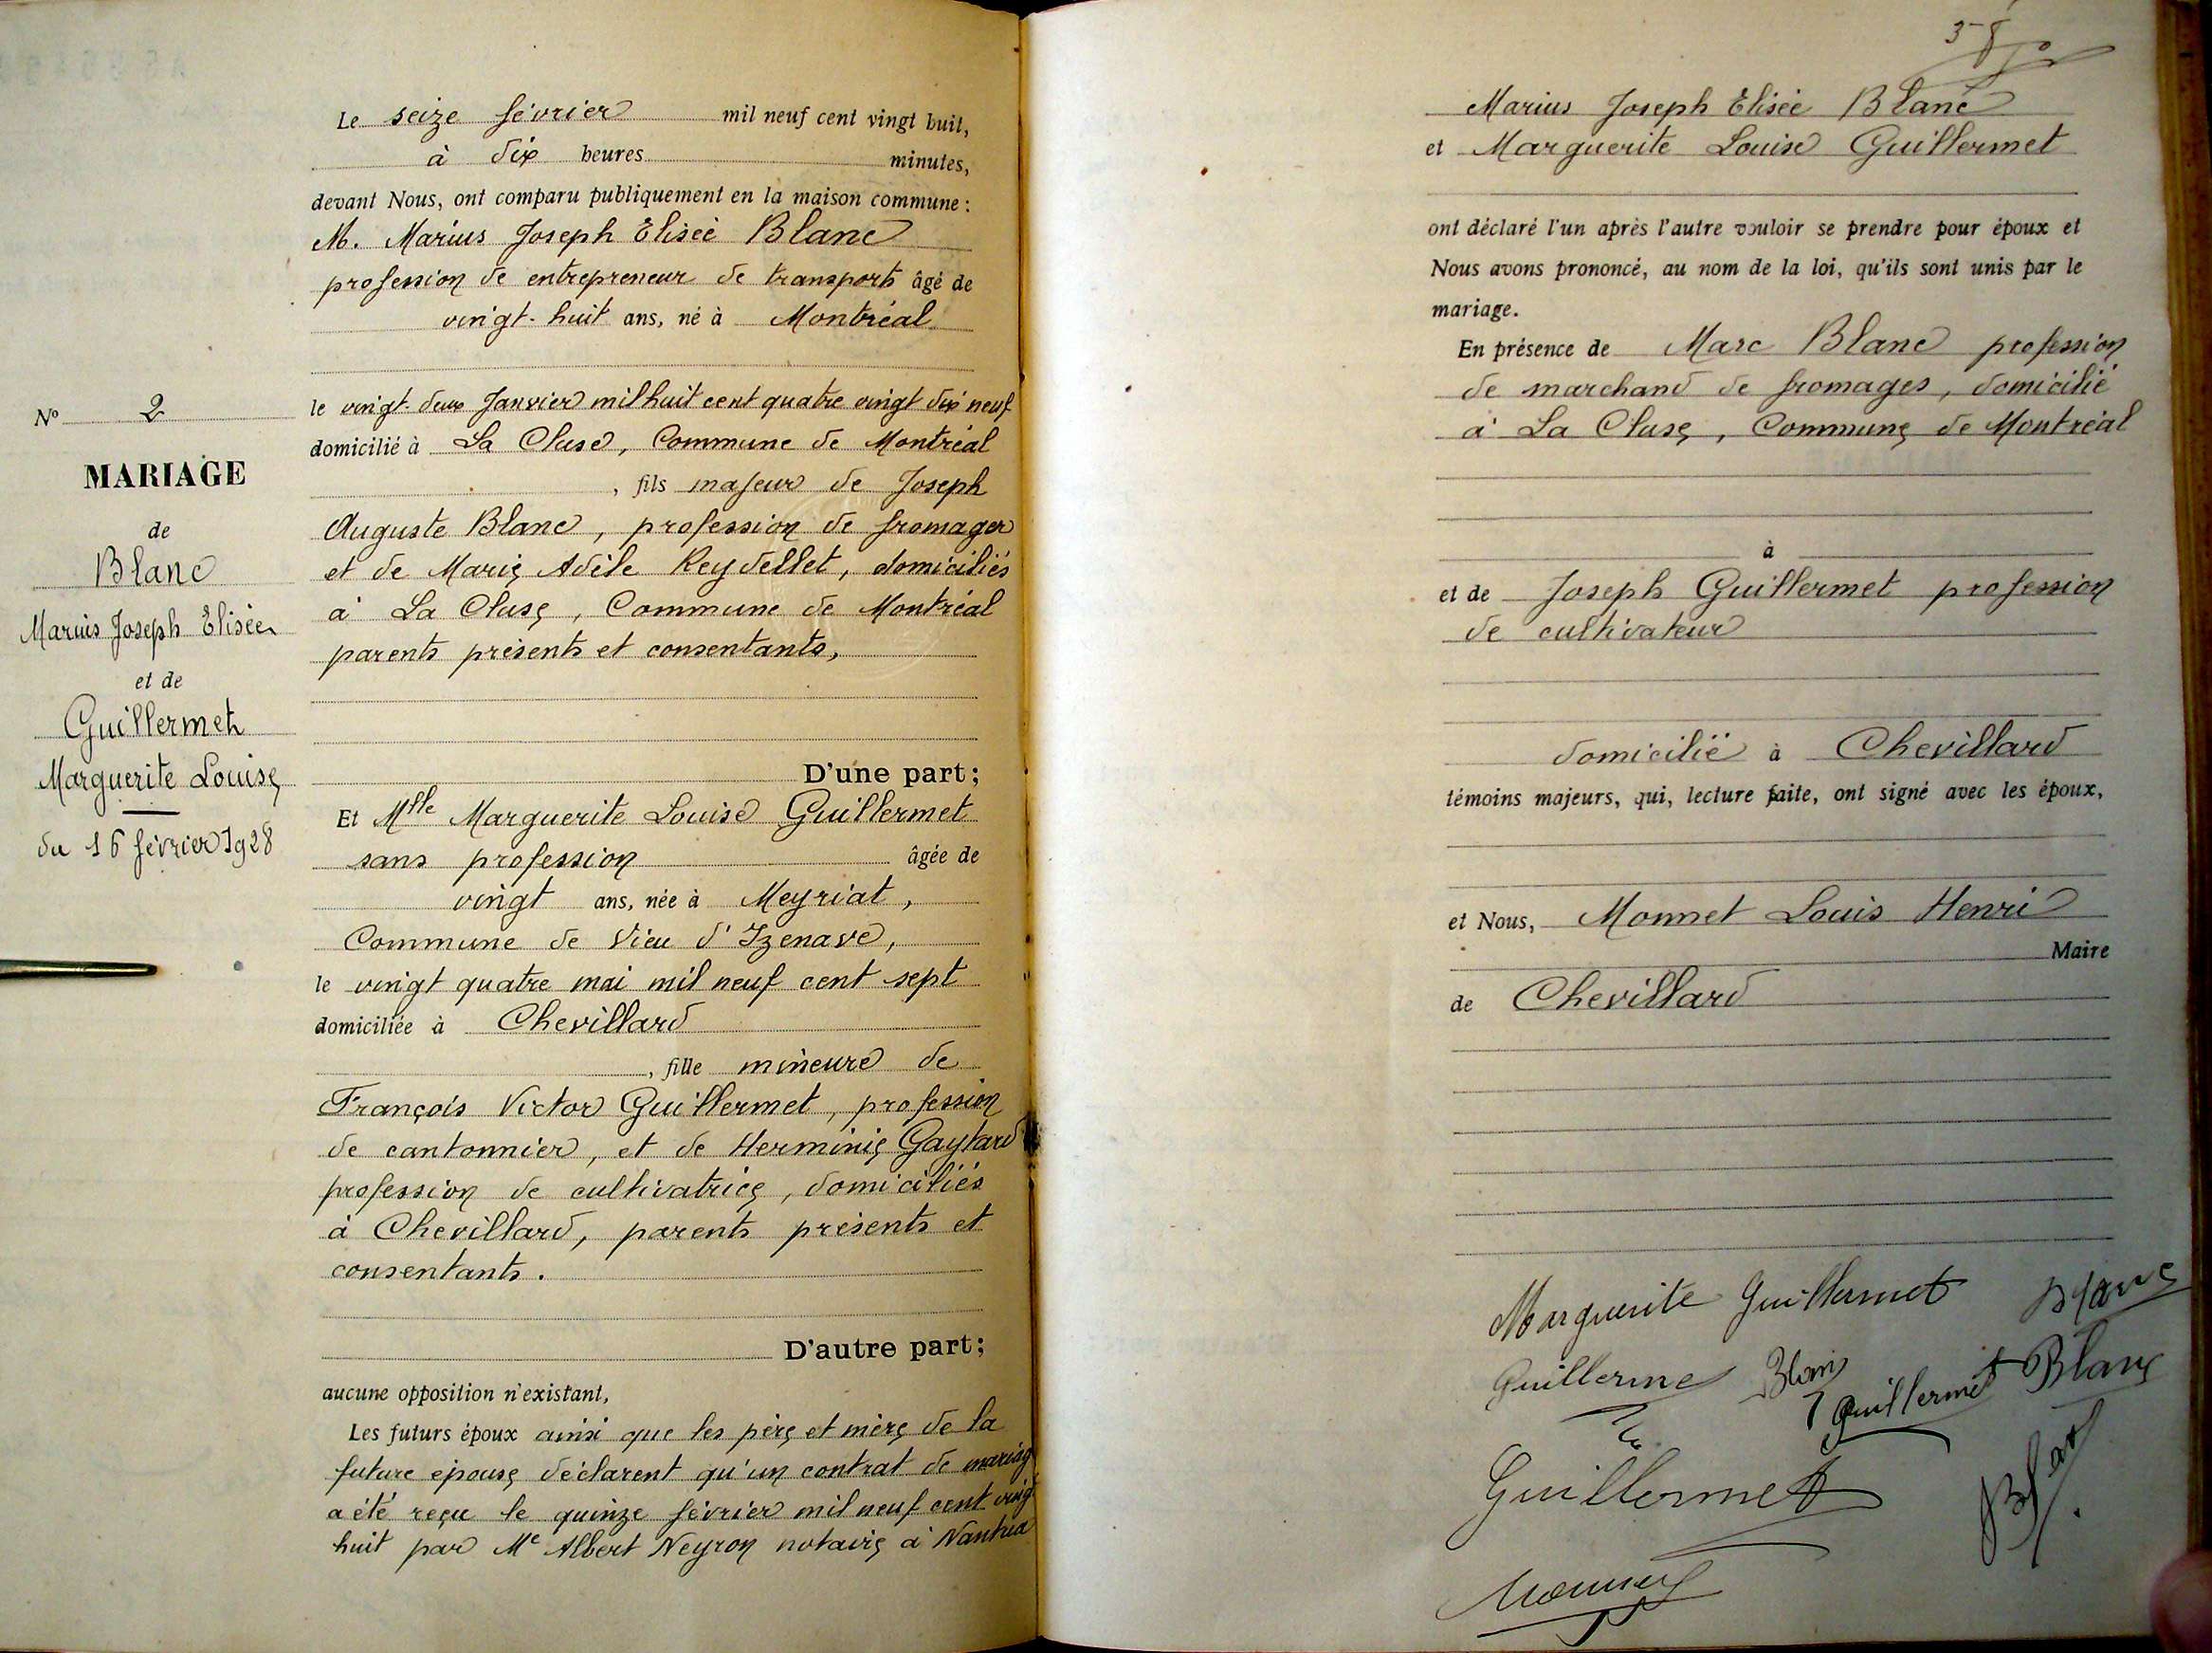 Nº 2
MARIAGE
de
Blanc
Marius Joseph Elisée
et de
Guillermet
Marguerite Louise
du 16 février 1928
Le seize février mil neuf cent vingt huit,
à dix heures minutes,
devant Nous, ont comparu publiquement en la maison commune :
M. Marius Joseph Elisée Blanc
profession de entrepreneur de transports âgé de
vingt-huit ans, né à Montréal
le vingt-deux Janvier mil huit cent quatre vingt dix neuf
domicilié à La Cluse, Commune de Montréal
, fils majeur de Joseph
Auguste Blanc, profession de fromager
et de Marie Adèle Reydellet, domiciliés
à La Cluse, Commune de Montréal
parents présents et consentants,
D'une part;
Et Mlle Marguerite Louise Guillermet
sans profession âgée de
vingt ans, née à Meyriat,
Commune de Vieu d'Izenave,
le vingt quatre mai mil neuf cent sept
domiciliée à Chevillard
, fille mineure de
François Victor Guillermet, profession
de cantonnier, et de Herminie Gaylard
profession de cultivatrice, domiciliés
à Chevillard, parents présents et
consentants.
D'autre part;
aucune opposition n'existant,
Les futurs époux ainsi que les père et mère de la
future épouse déclarent qu'un contrat de mariage
a été reçu le quinze février mil neuf cent vingt
huit par Me Albert Neyron notaire à Nantua
Marius Joseph Elisée Blanc
et Marguerite Louise Guillermet
ont déclaré l'un après l'autre vouloir se prendre pour époux et
Nous avons prononcé, au nom de la loi, qu'ils sont unis par le
mariage.
En présence de Marc Blanc profession
de marchand de fromages, domicilié
à La Cluse, Commune de Montréal
à
et de Joseph Guillermet profession
de cultivateur
domicilié à Chevillard
témoins majeurs, qui, lecture faite, ont signé avec les époux,
et Nous, Monnet Louis Henri
Maire
de Chevillard
Marguerite Guillermet Blanc
Guillermet Blanc Guillermet Blanc
Guillermet
Monnet